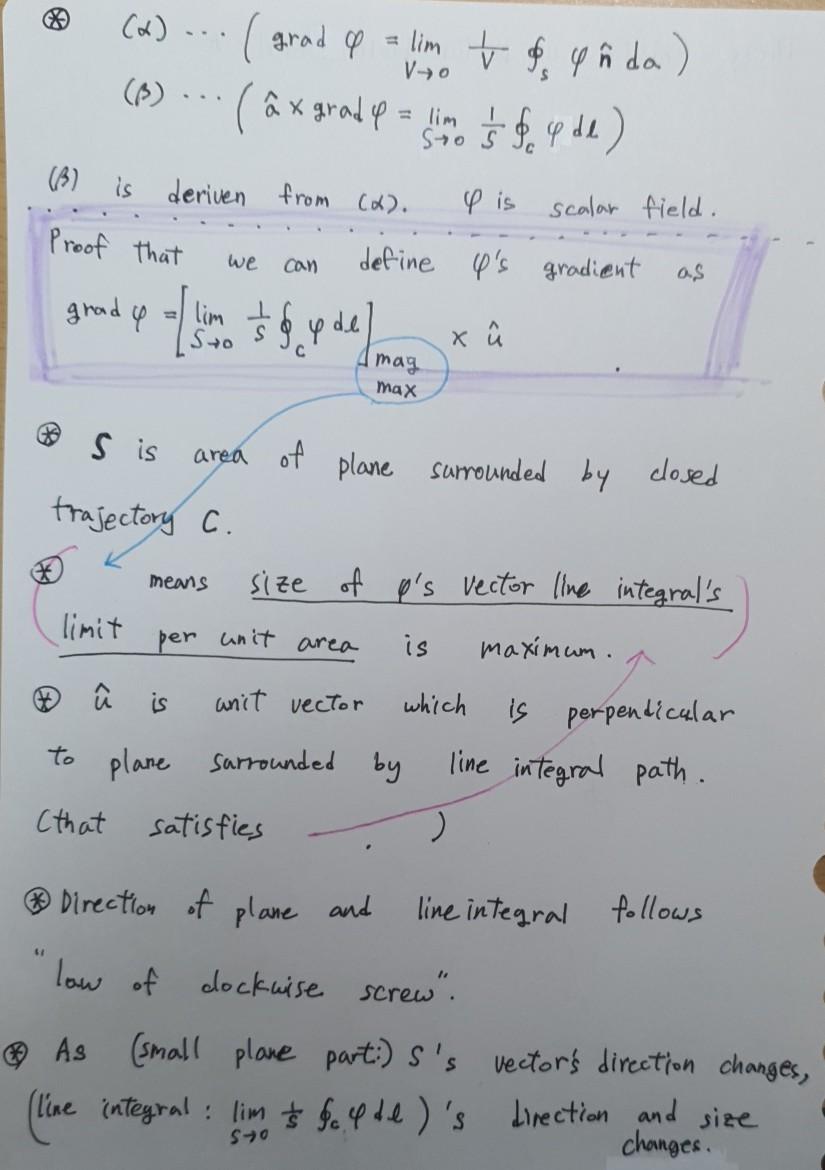 ⊛ (α) ... ( grad φ = lim V→0 1/V ∮s φ n̂ da )
(β) ... ( â × grad φ = lim S→0 1/S ∮c φ dl )
(β) is deriven from (α). φ is scalar field.
Proof that we can define φ's gradient as
grad φ = [ lim S→0 1/S ∮c φ dl ] mag max × û
⊛ S is area of plane surrounded by closed
trajectory C.
⊛ means size of φ's vector line integral's
limit per unit area is maximum.
⊛ û is unit vector which is perpendicular
to plane surrounded by line integral path.
(that satisfies )
⊛ Direction of plane and line integral follows
"law of clockwise screw".
⊛ As (small plane part:) S's vector's direction changes,
(line integral : lim S→0 1/S ∮c φ dl )'s direction and size
changes.